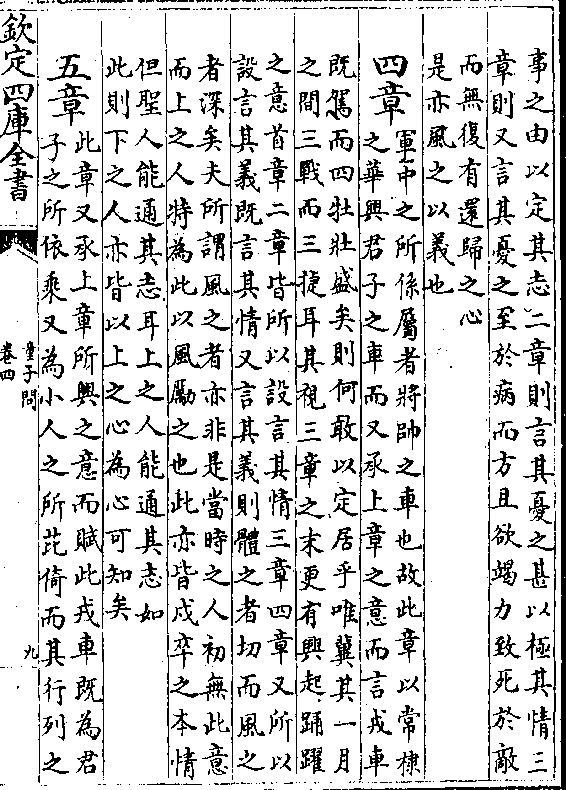 事之由以定其志二章則言其憂之甚以極其情三
章則又言其憂之至於病而方且欲竭力致死於敵
而無復有還歸之心
是亦風之以義也
四章軍中之所係屬者將帥之車也故此章以常棣
之華興君子之車而又承上章之意而言戎車
既駕而四牡壯盛矣則何敢以定居乎唯冀其一月
之間三戰而三捷耳其視三章之末更有興起踴躍
之意首章二章皆所以設言其情三章四章又所以
設言其義既言其情又言其義則體之者切而風之
者深矣夫所謂風之者亦非是當時之人初無此意
而上之人特為此以風勵之也此亦皆戍卒之本情
但聖人能通其志耳上之人能通其志如
此則下之人亦皆以上之心為心可知矣
五章此章又承上章所興之意而賦此戎車既為君
子之所依乘又為小人之所芘倚而其行列之
欽定四庫全書
童子問
卷四
九